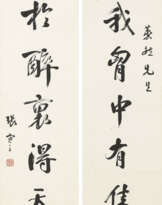 先生
我胸中有佳
於醉裏得天
張謇